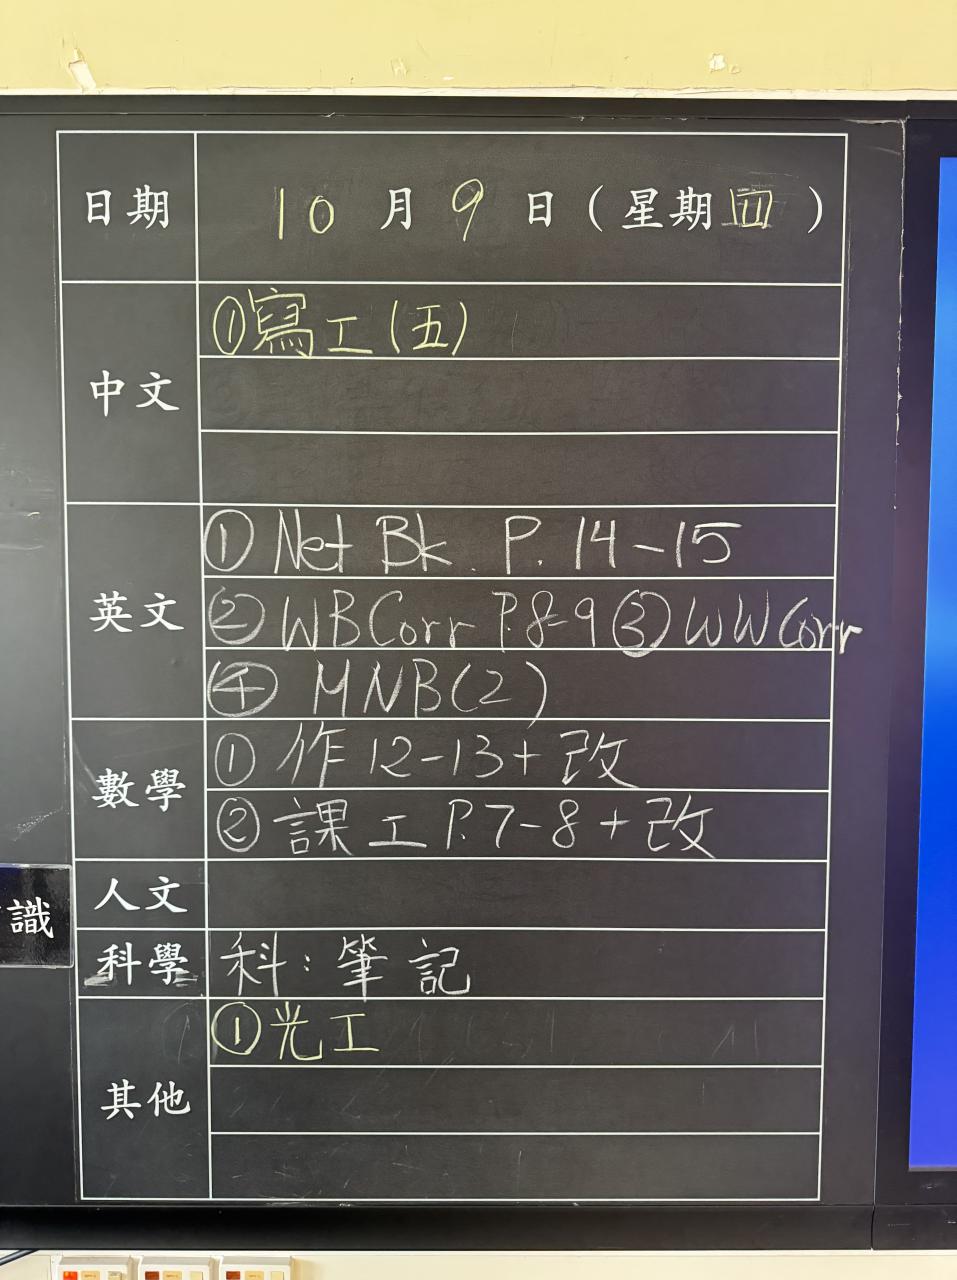 日期 10 月 9 日 ( 星期 四 )
中文 ①寫工(五)
英文 ① Net Bk. P. 14-15
② WB Corr P.8-9 ③ WW Corr
④ MNB(2)
數學 ① 作 12-13 + 改
② 課工 P.7-8 + 改
人文
識
科學 科: 筆記
其他 ①光工